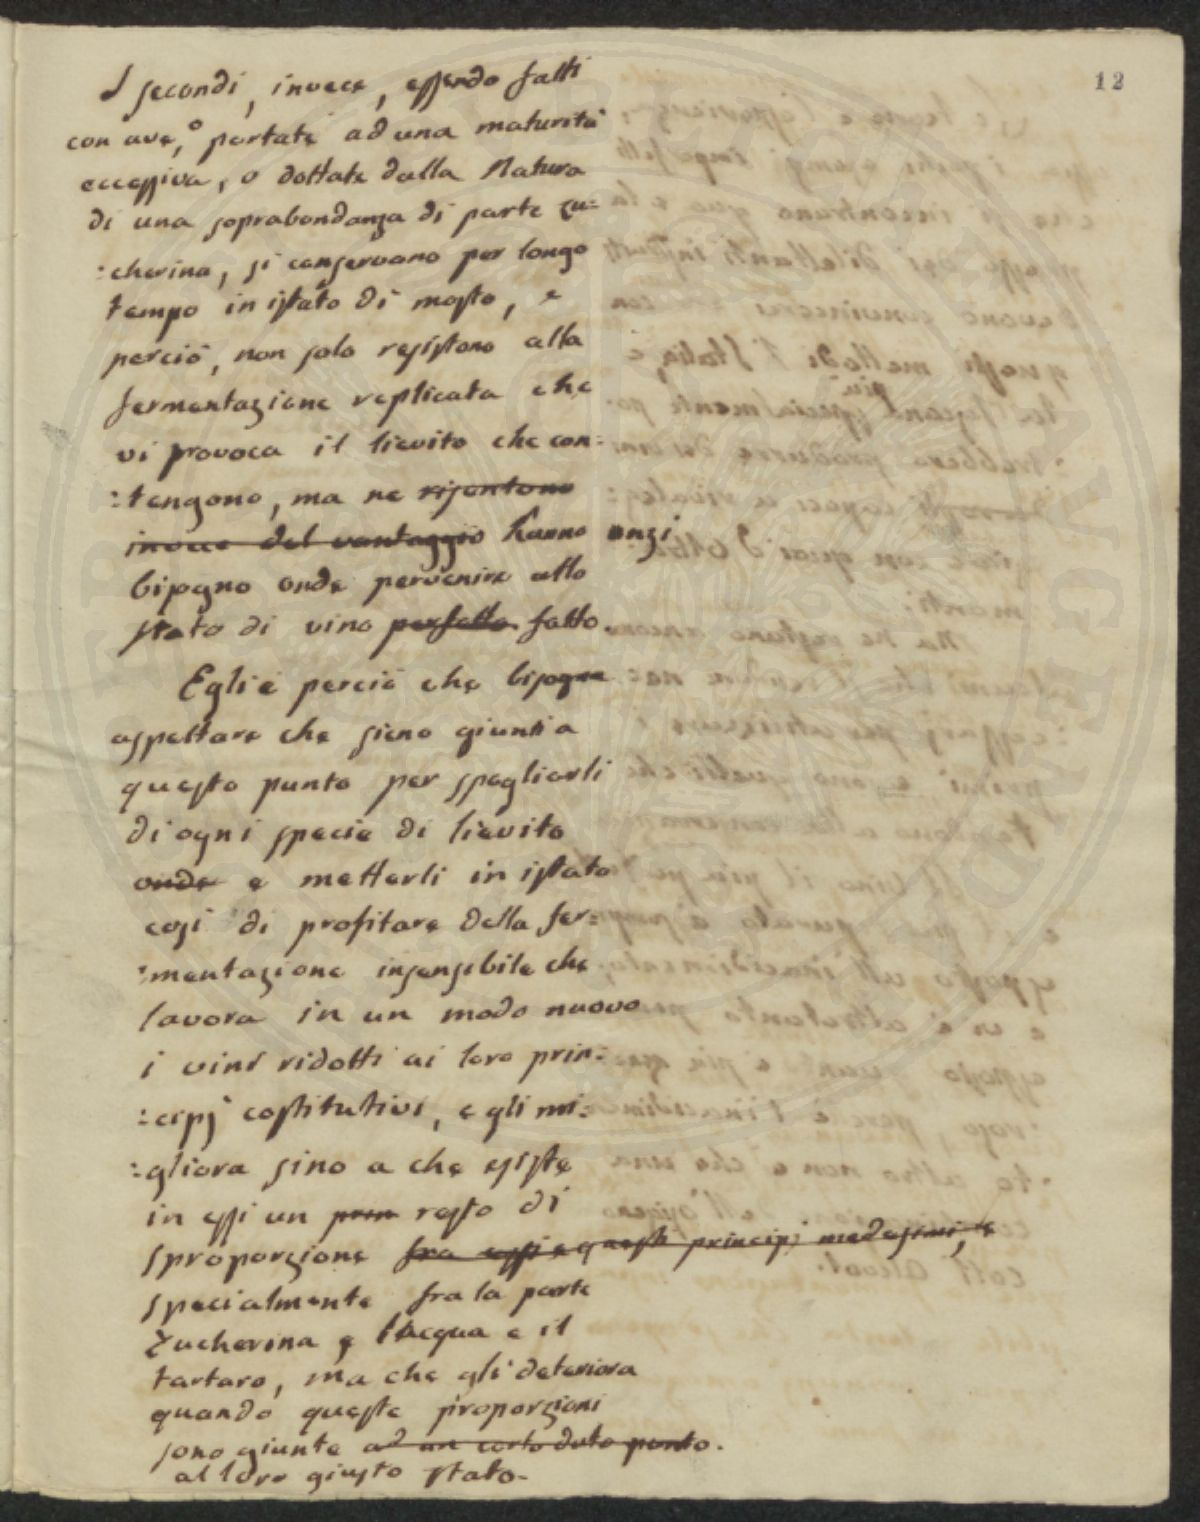 12
I secondi, invece, essendo fatti
con ave, o portate ad una maturità
eccessiva, o dottate dalla Natura
di una soprabondanza di parte zu=
:cherina, si conservano per longo
tempo in istato di mosto, e
perciò, non solo resistono alla
fermentazione replicata che
vi provoca il lievito che con=
:tengono, ma ne risentono
invece del vantaggio hanno anzi
bisogno onde pervenire allo
stato di vino perfetto. fatto.
Egli è perciò che bisogna
aspettare che sieno giunti a
questo punto per spogliarli
di ogni specie di lievito
onde e metterli in istato
così di profitare della fer=
:mentazione insensibile che
lavora in un modo nuovo
i vini ridotti ai loro prin=
:cipj costitutivi, e gli mi=
:gliora sino a che esiste
in essi un prin resto di
sproporzione fra essi e questi principj medesimi, e
specialmente fra la parte
Zucherina e l'Acqua e il
tartaro, ma che gli deteriora
quando queste proporzioni
sono giunte ad un certo dato punto.
al loro giusto stato.